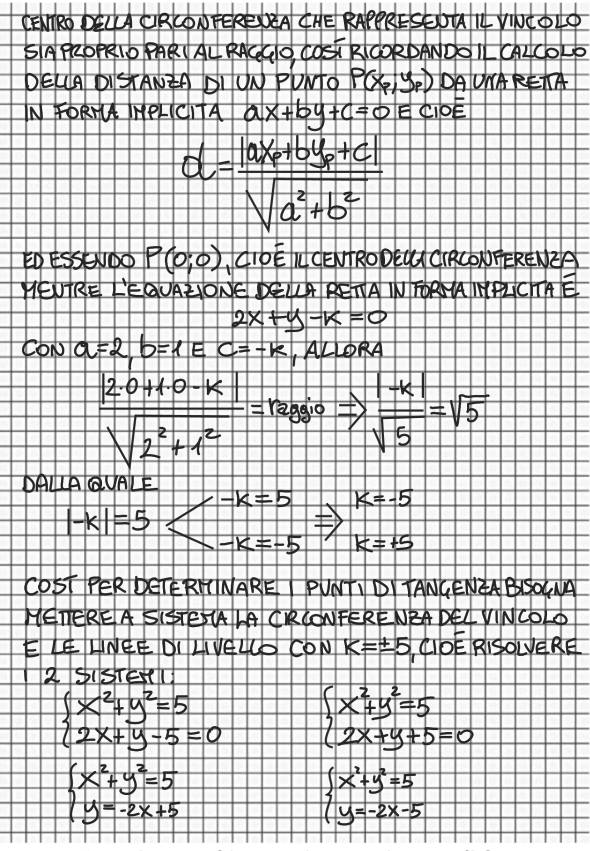 CENTRO DELLA CIRCONFERENZA CHE RAPPRESENTA IL VINCOLO
SIA PROPRIO PARI AL RAGGIO, COSÍ RICORDANDO IL CALCOLO
DELLA DISTANZA DI UN PUNTO P(xₚ,yₚ) DA UNA RETTA
IN FORMA IMPLICITA ax+by+c=0 E CIOÈ
d = |axₚ+byₚ+c| / √(a²+b²)
ED ESSENDO P(0;0), CIOÈ IL CENTRO DELLA CIRCONFERENZA
MENTRE L'EQUAZIONE DELLA RETTA IN FORMA IMPLICITA È
2x+y-k=0
CON a=2, b=1 E c=-k, ALLORA
|2·0+1·0-k| / √(2²+1²) = raggio ⇒ |-k| / √5 = √5
DALLA QUALE
|-k|=5 < -k=5 ⇒ k=-5
-k=-5 k=+5
COSÍ PER DETERMINARE I PUNTI DI TANGENZA BISOGNA
METTERE A SISTEMA LA CIRCONFERENZA DEL VINCOLO
E LE LINEE DI LIVELLO CON k=±5, CIOÈ RISOLVERE
I 2 SISTEMI:
{ x²+y²=5 { x²+y²=5
2x+y-5=0 2x+y+5=0
{ x²+y²=5 { x²+y²=5
y=-2x+5 y=-2x-5